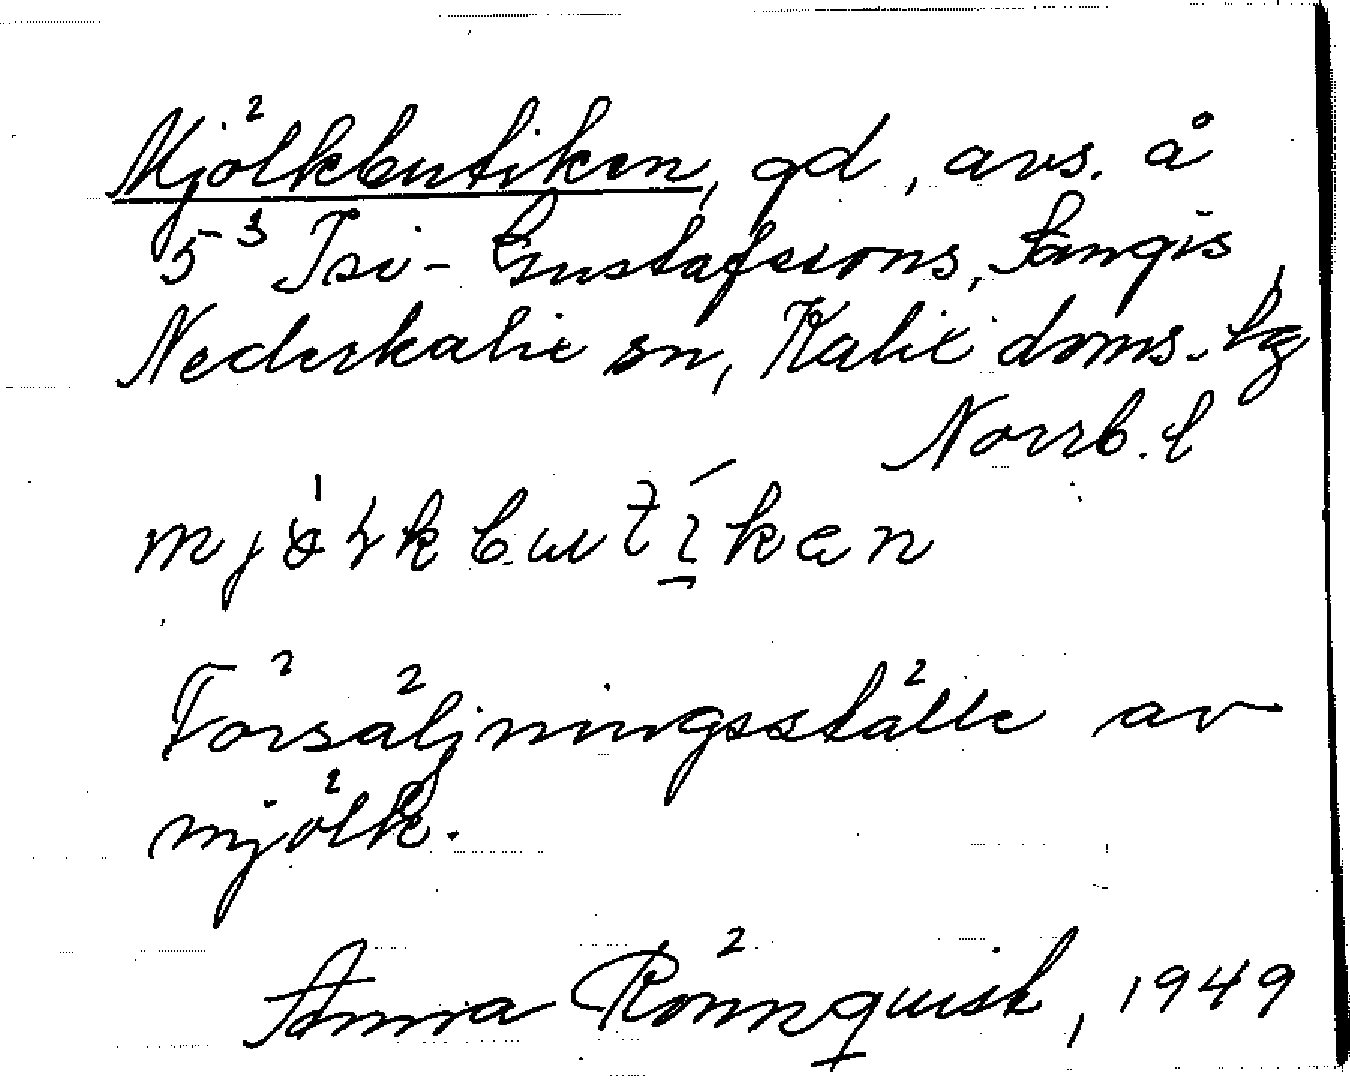 Mjölkbutiken, gd, avs. å
5³ Isi-Gustafssons, Sangis,
Nederkalix sn, Kalix doms. tg
Norrb. l
Försäljningsställe av
mjölk.
Anna Rönnquist, 1949